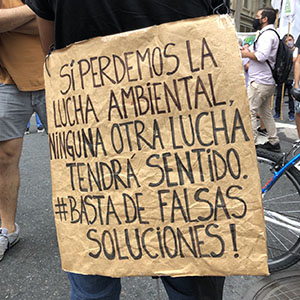 SI PERDEMOS LA
LUCHA AMBIENTAL,
NINGUNA OTRA LUCHA
TENDRÁ SENTIDO.
#BASTA DE FALSAS
SOLUCIONES!